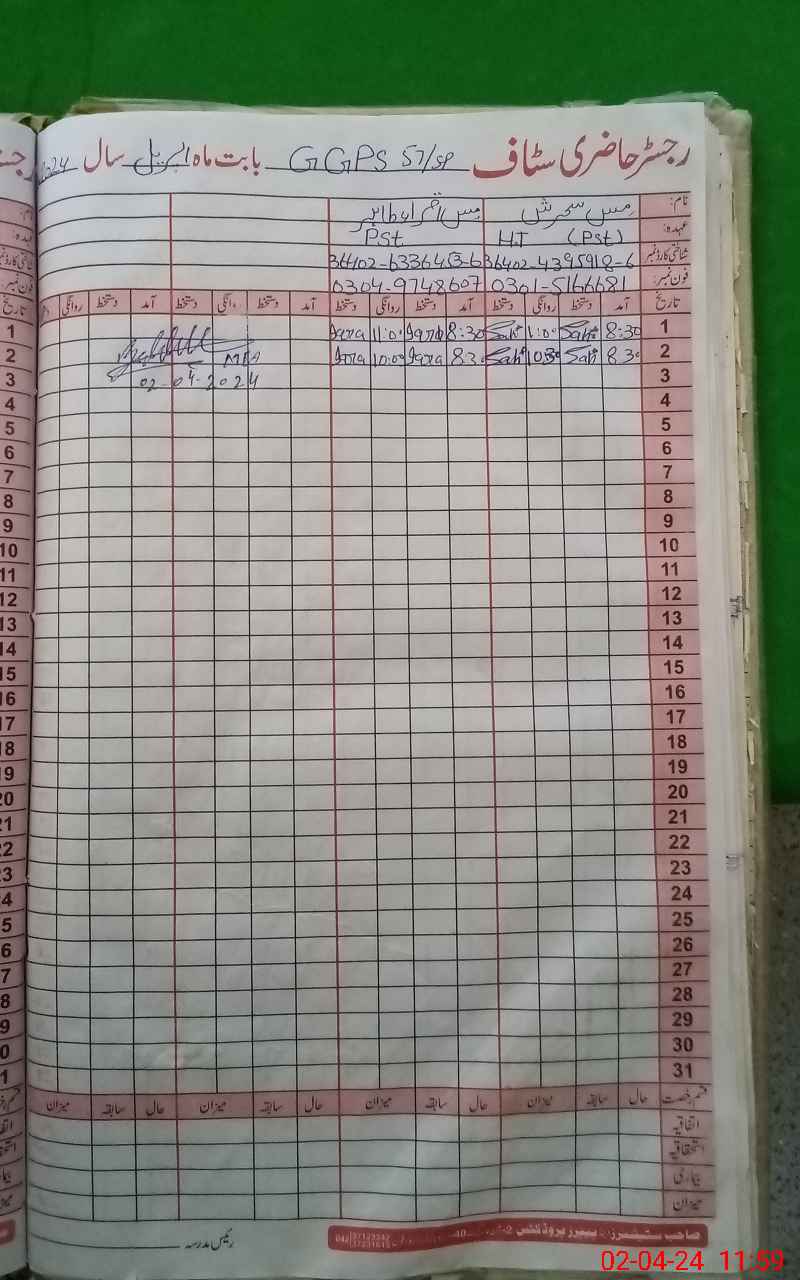 رجسٹر حاضری سٹاف GGPS 57/SP بابت ماہ اپریل سال 2024
نام: مس سحرش مس اقراء طاہر
عہدہ: H.T (PST) PST
شناختی کارڈ نمبر 36402-4395918-6 36402-6336453-6
فون نمبر: 0301-5166681 0304-9748607
تاریخ آمد دستخط روانگی دستخط آمد دستخط روانگی دستخط آمد دستخط روانگی دستخط آمد دستخط روانگی
1 8:30 Sahi 1:00 Sahi 8:30 Iqra 11:00 Iqra
2 8:30 Sahi 10:30 Sahi 8:30 Iqra 10:00 Iqra
MEA
3
02-04-2024
4
5
6
7
8
9
10
11
12
13
14
15
16
17
18
19
20
21
22
23
24
25
26
27
28
29
30
31
قسم رخصت حال سابقہ میزان حال سابقہ میزان حال سابقہ میزان حال سابقہ میزان
اتفاقیہ
استحقاقیہ
بیماری
میزان
رئیس مدرسہ
صاحب سٹیشنرز اینڈ پیپر پروڈکٹس
02-04-24 11:59